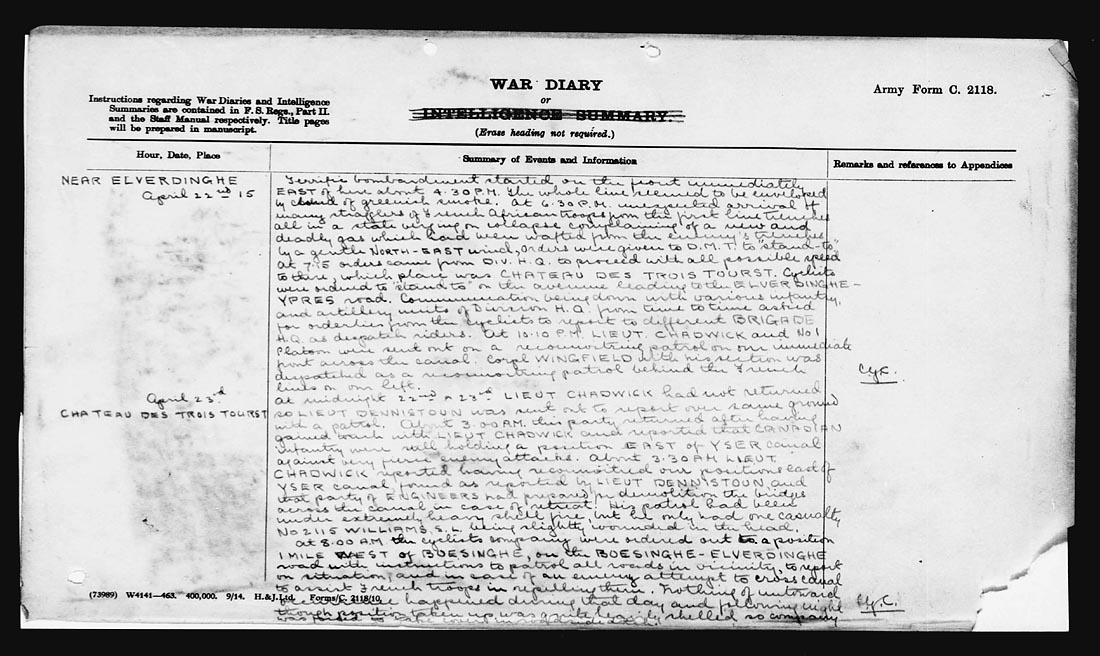 WAR DIARY
or
INTELLIGENCE SUMMARY.
(Erase heading not required.)
Army Form C. 2118.
Instructions regarding War Diaries and Intelligence
Summaries are contained in F. S. Regs., Part II.
and the Staff Manual respectively. Title pages
will be prepared in manuscript.
Hour, Date, Place
Summary of Events and Information
Remarks and references to Appendices
NEAR ELVERDINGHE
April 22nd 15
Terrific bombardment started on the front immediately
EAST of here about 4.30 P.M. The whole line seemed to be enveloped
by cloud of greenish smoke. At 6.30 P.M. unexpected arrival of
many stragglers of French African troops from the first line trenches
all in a state verging on collapse complaining of a new and
deadly gas which had been wafted from the enemy's trenches
by a gentle NORTH-EAST wind, orders were given to D.M.T. to "stand-to"
at 7.15 orders came from DIV. H.Q. to proceed with all possible speed
to there, which place was CHATEAU DES TROIS TOURST. Cyclists
were ordered to "stand to" on the avenue leading to the ELVERDINGHE-
YPRES road. Communication being down with various infantry,
and artillery units of Division H.Q. from time to time asked
for orderlies from the cyclists to report to different BRIGADE
H.Q. as despatch riders. At 10.10 P.M. LIEUT CHADWICK and No 1
Platoon were sent out on a reconnoitring patrol on our immediate
front across the canal. Corpl WINGFIELD with his section was
despatched as a reconnoitring patrol behind the French
lines on our left.
Cyc.
April 23rd
CHATEAU DES TROIS TOURST
at midnight 22nd 23rd LIEUT CHADWICK had not returned
so LIEUT DENNISTOUN was sent out to report over same ground
with a patrol. About 3.00 A.M. this party returned after having
gained touch with LIEUT CHADWICK and reported that CANADIAN
infantry were still holding a position EAST of YSER canal
against very fierce enemy attacks. About 3.30 AM LIEUT
CHADWICK reported having reconnoitred our positions east of
YSER canal found as reported by LIEUT DENNISTOUN and
that party of ENGINEERS had prepared for demolition the bridges
across the canal in case of retreat. His patrol had been
under extremely heavy shell fire but he only had one casualty
No 2115 WILLIAMS, S.L. being slightly wounded in the head.
at 8.00 AM the cyclists company were ordered out to a position
1 MILE WEST of BOESINGHE, on the BOESINGHE-ELVERDINGHE
road with instructions to patrol all roads in vicinity, to report
on situation, and in case of an enemy attempt to cross canal
to assist French troops in repelling them. Nothing of untoward
happened during that day and following night
though position taken up was quite heavily shelled so company
was
Cyc.
(73989) W4141—463. 400,000. 9/14. H.&J.Ltd. Forms/C. 2118/10.